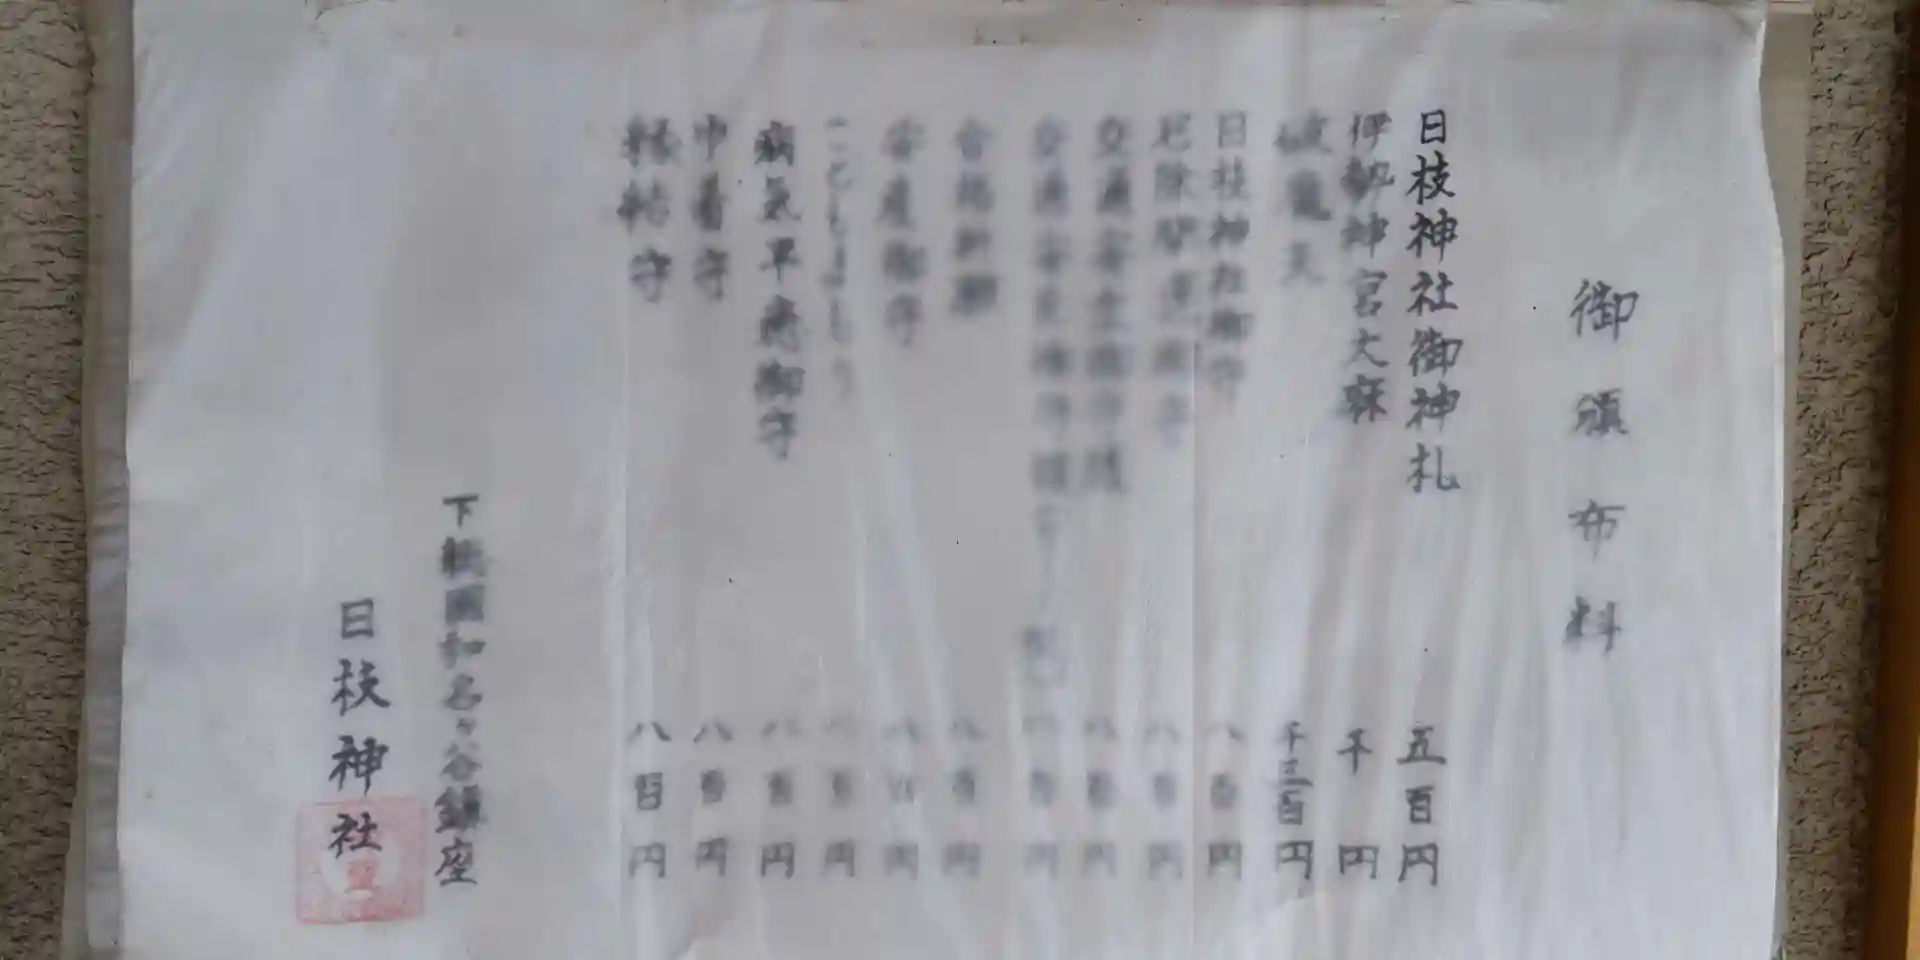 御頒布料
日枝神社御神札 五百円
伊勢神宮大麻 千円
破魔矢 千三百円
日枝神社御守 八百円
厄除開運御守 八百円
交通安全御守 八百円
交通安全御守 八百円
合格祈願 八百円
安産御守 八百円
八百円
病気平癒御守 八百円
巾着守 八百円
根付守 八百円
下総国和名ヶ谷鎮座
日枝神社